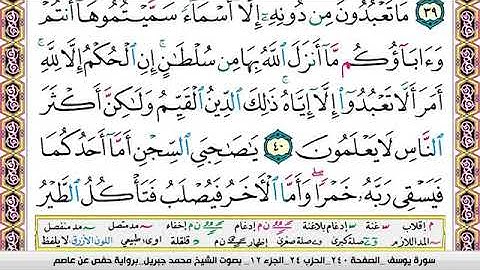 ٣٩ مَا تَعْبُدُونَ مِن دُونِهِۦٓ إِلَّآ أَسْمَآءً سَمَّيْتُمُوهَآ أَنتُمْ
وَءَابَآؤُكُم مَّآ أَنزَلَ ٱللَّهُ بِهَا مِن سُلْطَٰنٍ ۚ إِنِ ٱلْحُكْمُ إِلَّا لِلَّهِ ۚ
أَمَرَ أَلَّا تَعْبُدُوٓا۟ إِلَّآ إِيَّاهُ ۚ ذَٰلِكَ ٱلدِّينُ ٱلْقَيِّمُ وَلَٰكِنَّ أَكْثَرَ
ٱلنَّاسِ لَا يَعْلَمُونَ ٤٠ يَٰصَىٰحِبَىِ ٱلسِّجْنِ أَمَّآ أَحَدُكُمَا
فَيَسْقِى رَبَّهُۥ خَمْرًا ۖ وَأَمَّا ٱلْءَاخَرُ فَيُصْلَبُ فَتَأْكُلُ ٱلطَّيْرُ
م إقلاب غنة إدغام بلاغنة إدغام إخفاء مد متصل مد منفصل
المد اللازم صلة كبرى وصلة صغرى إظهار قلقلة اوى طبيعي اللون الأزرق لا يلفظ
سورة يوسف _الصفحة ٢٤٠_ الحزب ٢٤_ الجزء ١٢_ بصوت الشيخ محمد جبريل_ برواية حفص عن عاصم